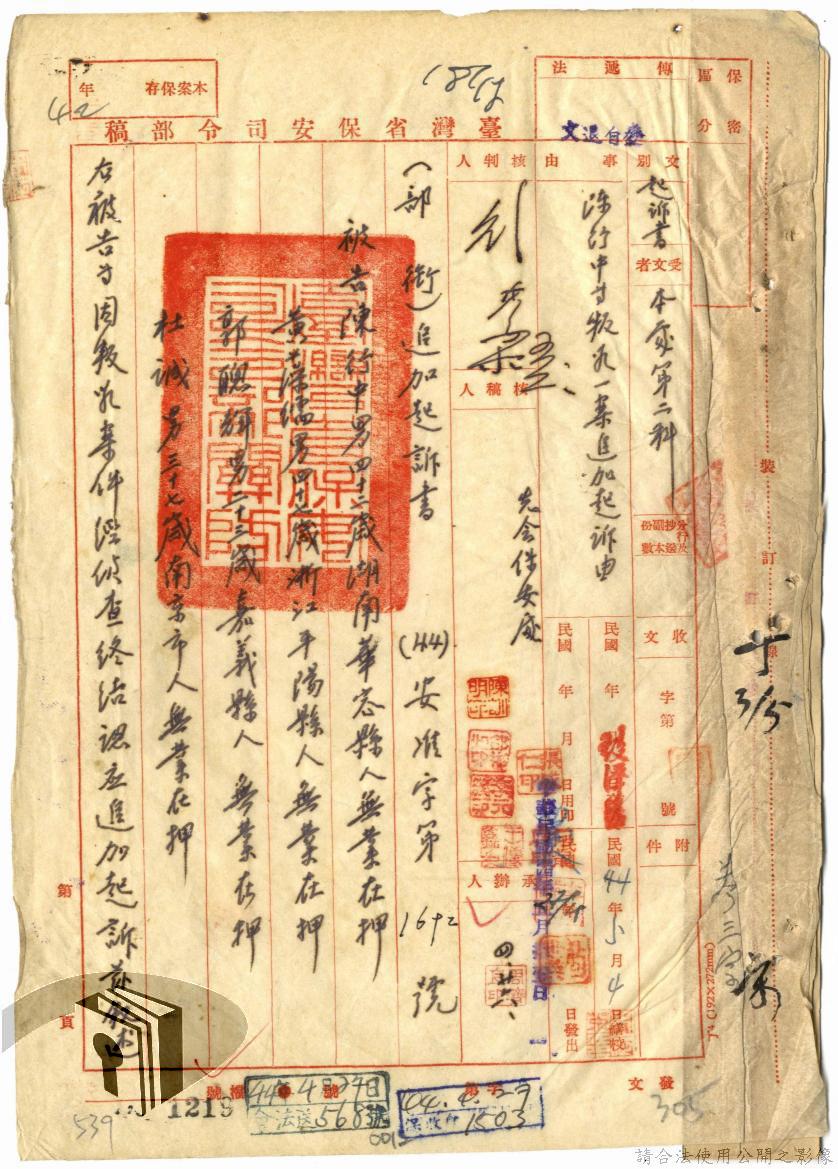 保密區分
傳遞法
發自退文
臺灣省保安司令部稿
本案保存
年
42
文別
起訴書
受文者
本處第二科
事由
陳行中等叛亂一案追加起訴由
核判人
核稿人
先會保安處
承辦人
分行及抄送副本份數
收文
字第
號
附件
民國
年
月
日用印
民國44年5月4日繕校
日發出
(部銜)追加起訴書
(44)安准字第1692號
被告陳行中男四十二歲湖南華容縣人無業在押
男四十七歲浙江平陽縣人無業在押
郭聰輝男二十三歲嘉義縣人無業在押
杜誠男三十七歲南京市人無業在押
右被告等因叛亂案件經偵查終結認應追加起訴茲敘述
裝
訂
線
3/5
第
頁
發文
字第
號
檔號
1219
44年4月29日
合法送568號
44.4.29
1503
305
539
J4(192×272mm)
請合法使用公開之影像